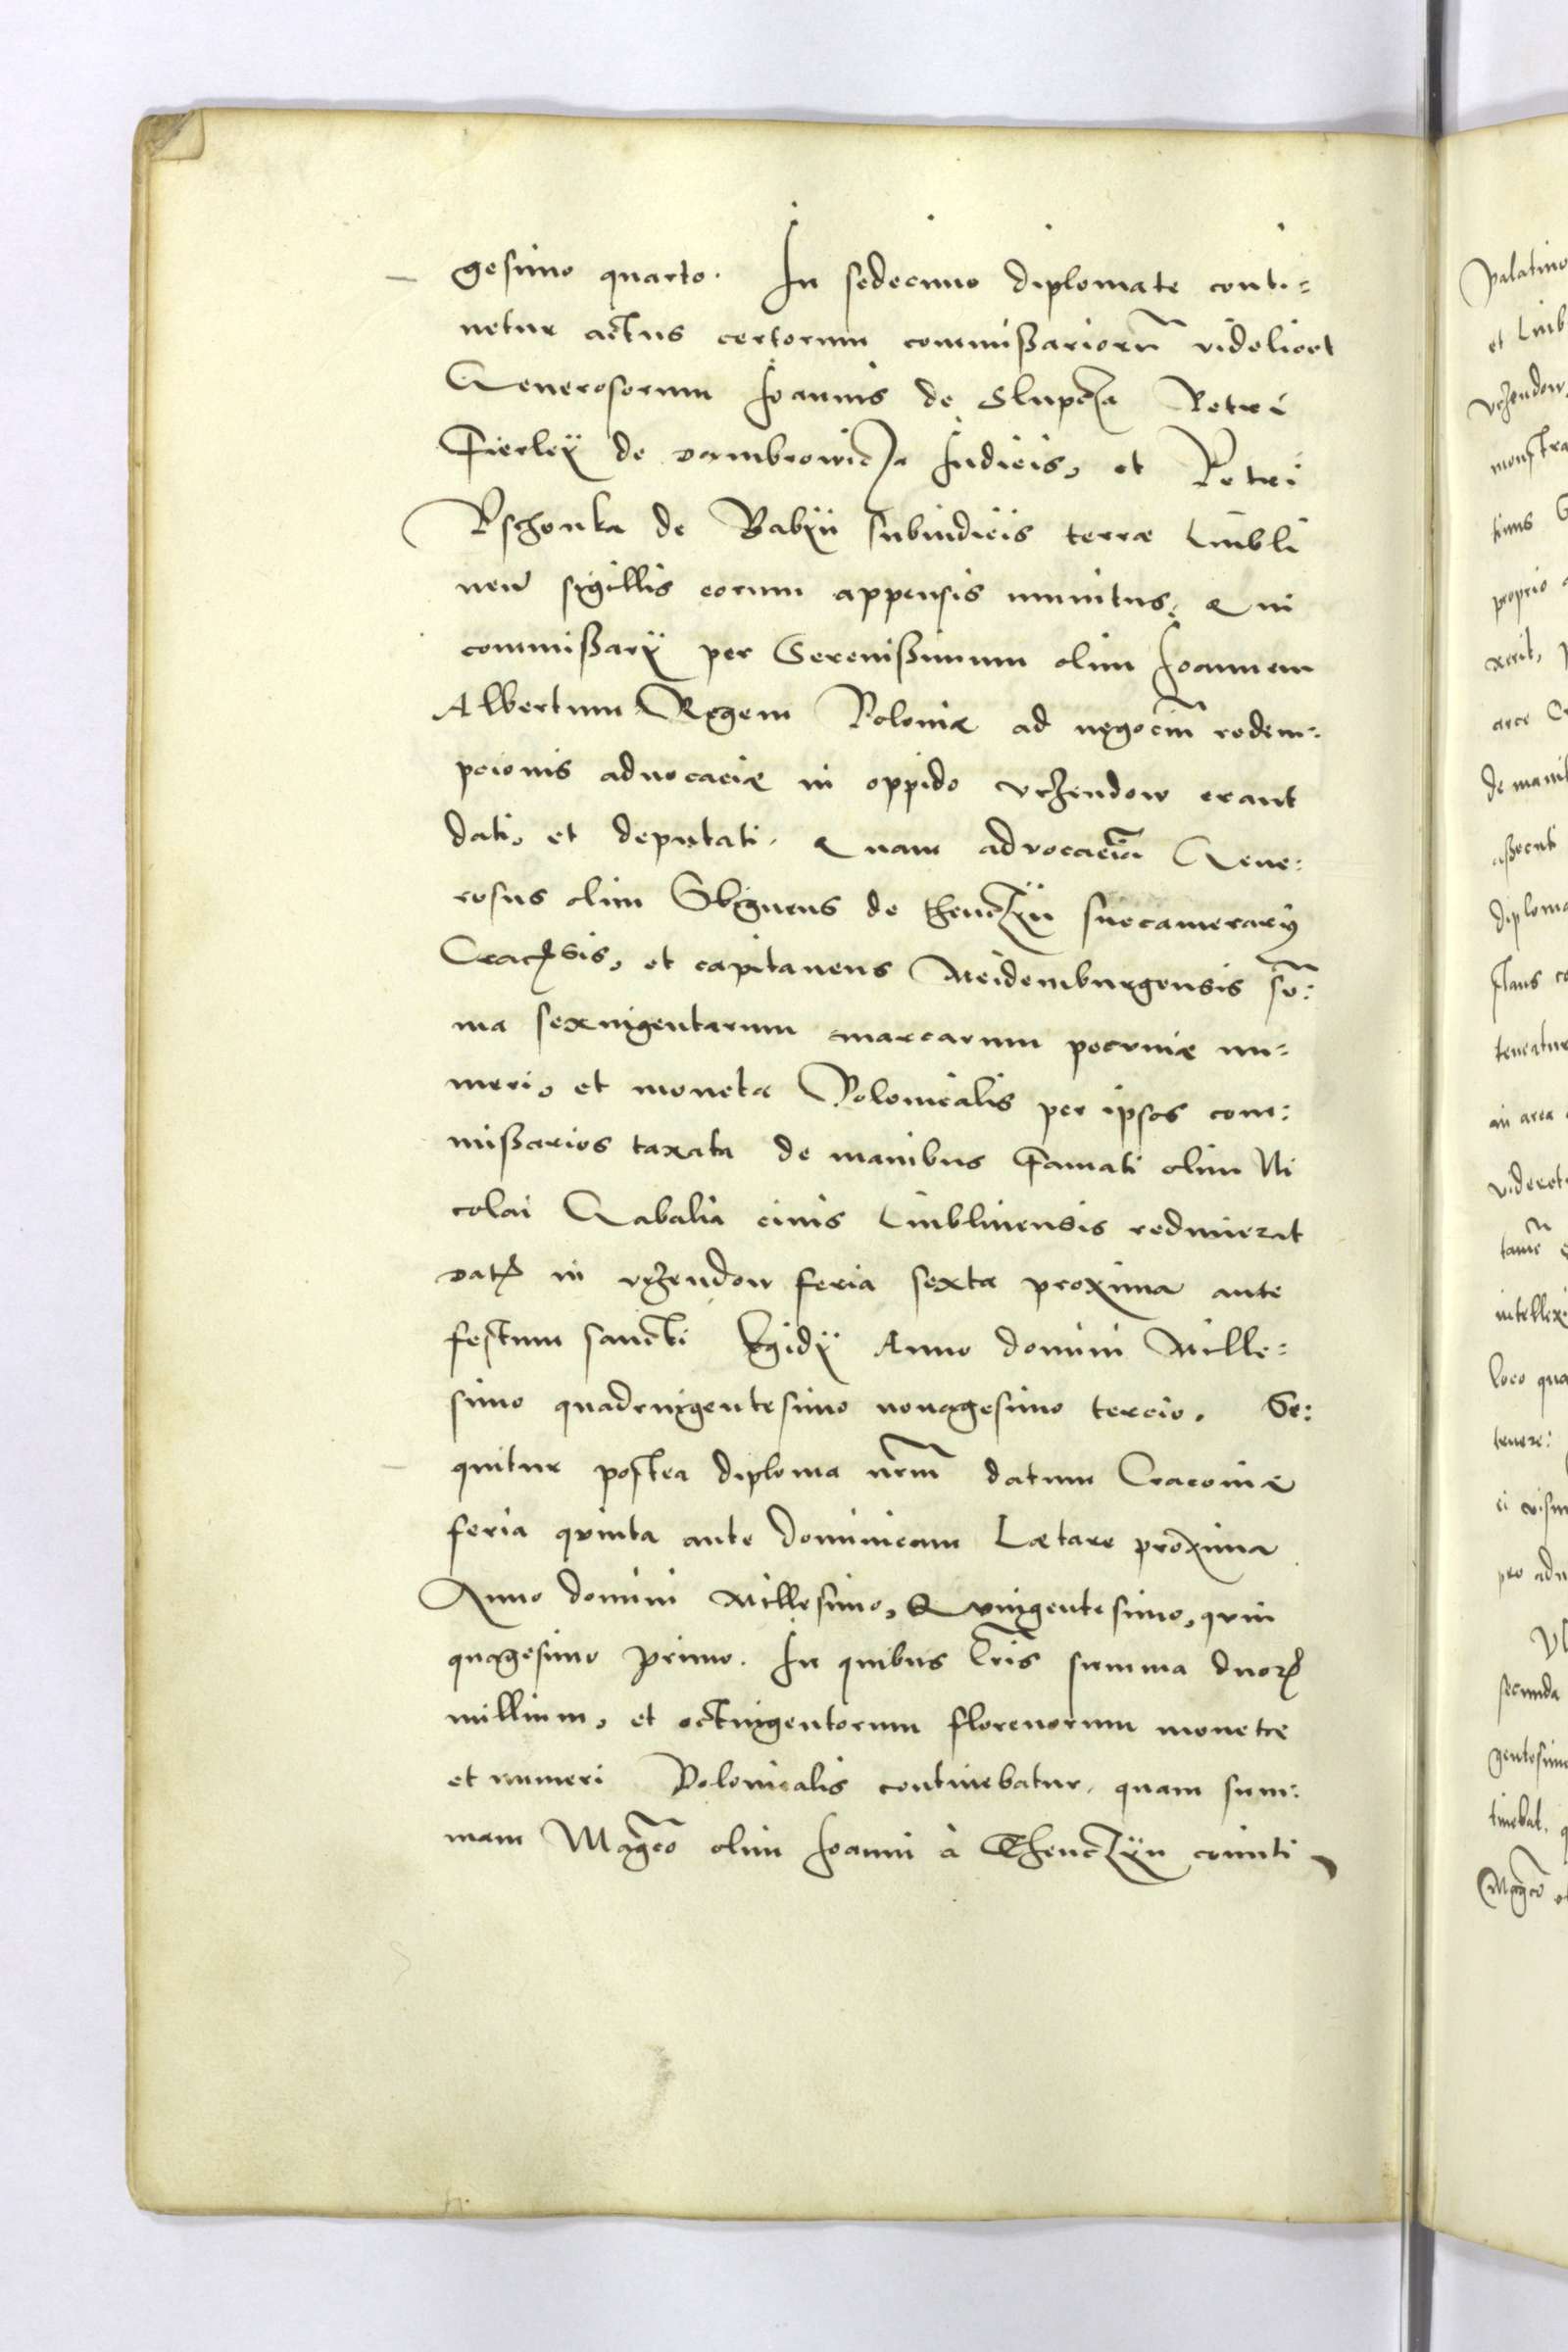 gesimo quarto. In sedecimo diplomate conti=
netur actus certorum commißariorũ videlicet
Generosorum Ioannis de Slupcza Petri
Fierleÿ de Dambrowicza Iudicis, et Petri
Pschonka de Babÿn subiudicis terræ Lubli
nen̄ sigillis eorum appensis munitus, Qui
commißarÿ per Serenißimum olim Ioannem
Albertum Regem Poloniæ ad negociũ redem=
pcionis aduocaciæ in oppido Vrzendow erant
dati, et deputati. Quam advocaciã Gene=
rosus olim Sbigneus de Thenczÿn succamerarÿ
Cracoviẽsis, et capitaneus Meidemburgensis sũ=
ma sexingentarum marcarum pecuniæ nu=
meri, et moneta Polonicalis per ipsos com=
mißarios taxata de manibus Famati olim Ni
colai Gabalia ciuis Lublinensis redimerat
Datꝭ in vrzendow feria sexta proxima ante
festum sancti Egidÿ Anno domini Mille=
simo quadringentesimo nonagesimo tercio. Se=
quitur postea diploma nr̃m datum Cracouiæ
feria quinta ante dominicam Lætare proxima
Anno domini Millesimo, Quingentesimo, quin
quagesimo primo. In quibus lr̃is summa duorꝭ
millium, et octingentorum florenorum monetæ
et numeri Polonicalis continebatur, quam sum=
mam Magc̃o olim Ioanni à Thenczÿn comiti
palatino
et Lub
vrzendow
monstra
simus
proprio
xerit,
arce
de mani
aßecuti
diploma
stans
teneatur
in arce
videret
tamẽ
intellex
loco qua
tenere:
ei
pro adu
Vl
secunda
gentesimo
tinebat.
Magc̃o